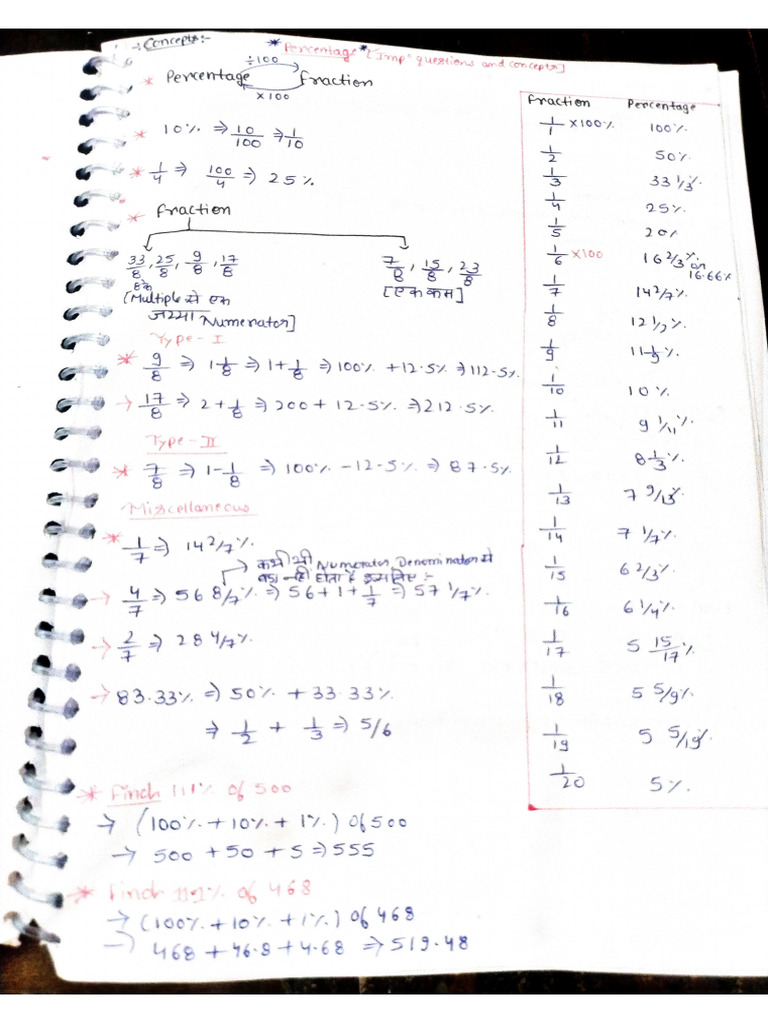 → Concepts:- *Percentage* [Imp* questions and concepts]
÷100
* Percentage fraction
×100
* 10% ⇒ 10/100 ⇒ 1/10
* 1/4 ⇒ 100/4 ⇒ 25%
* fraction
33/8, 25/8, 9/8, 17/8
7/8, 15/8, 23/8
8 के
[Multiple से एक
ज्यादा Numerator]
[एक कम]
Type-I
* 9/8 ⇒ 1 1/8 ⇒ 1 + 1/8 ⇒ 100% + 12.5% ⇒ 112.5%
→ 17/8 ⇒ 2 + 1/8 ⇒ 200 + 12.5% ⇒ 212.5%
Type-II
* 7/8 ⇒ 1 - 1/8 ⇒ 100% - 12.5% ⇒ 87.5%
Miscellaneous
* 1/7 ⇒ 14 2/7%
→ कभी भी Numerator, Denominator से
बड़ा नहीं होता है इसलिए:-
→ 4/7 ⇒ 56 8/7% ⇒ 56 + 1 + 1/7 ⇒ 57 1/7%
→ 2/7 ⇒ 28 4/7%
→ 83.33% ⇒ 50% + 33.33%
⇒ 1/2 + 1/3 ⇒ 5/6
* Find 111% of 500
→ (100% + 10% + 1%) of 500
→ 500 + 50 + 5 ⇒ 555
* Find 111% of 468
→ (100% + 10% + 1%) of 468
→ 468 + 46.8 + 4.68 ⇒ 519.48
fraction Percentage
1/1 ×100% 100%
1/2 50%
1/3 33 1/3%
1/4 25%
1/5 20%
1/6 ×100 16 2/3% or 16.66%
1/7 14 2/7%
1/8 12 1/2%
1/9 11 1/9%
1/10 10%
1/11 9 1/11%
1/12 8 1/3%
1/13 7 9/13%
1/14 7 1/7%
1/15 6 2/3%
1/16 6 1/4%
1/17 5 15/17%
1/18 5 5/9%
1/19 5 5/19%
1/20 5%